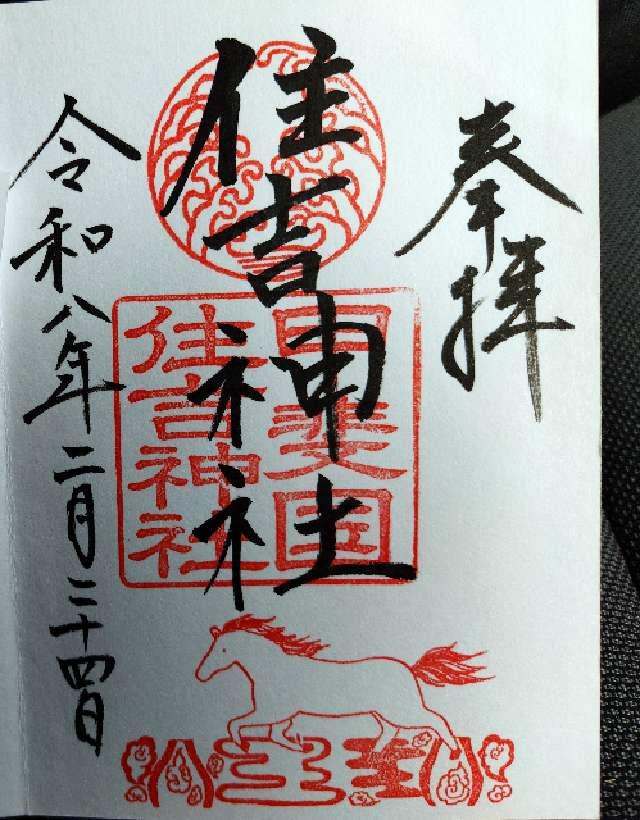 奉拝
住吉神社
甲斐国
住吉神社
令和八年二月二十四日